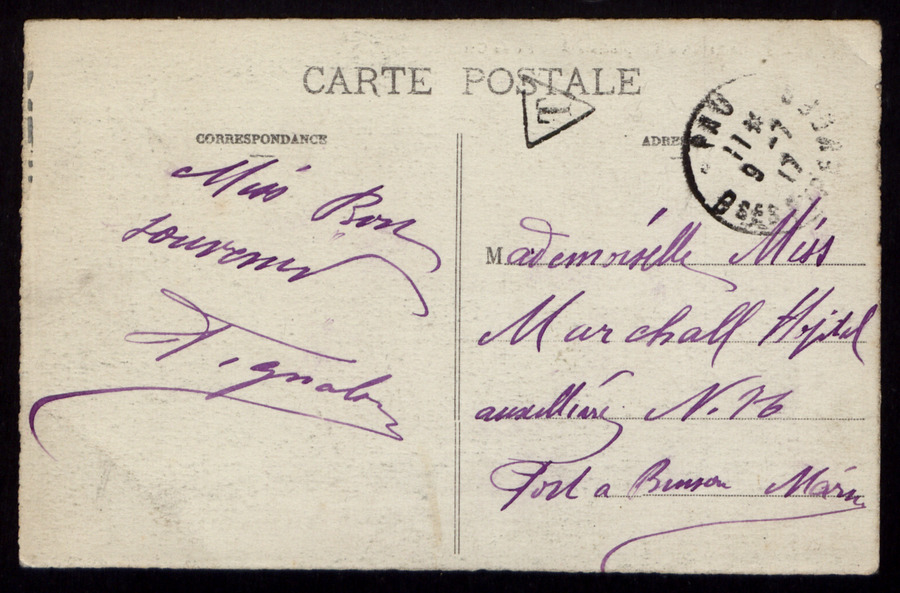 CARTE POSTALE
T
CORRESPONDANCE
Miss Bon
souvenir
ADRES
PAU
11 
9 -7
17
Mademoiselle Miss
Marchall Hopital
auxilliere N. 76
Port a Binson Marne